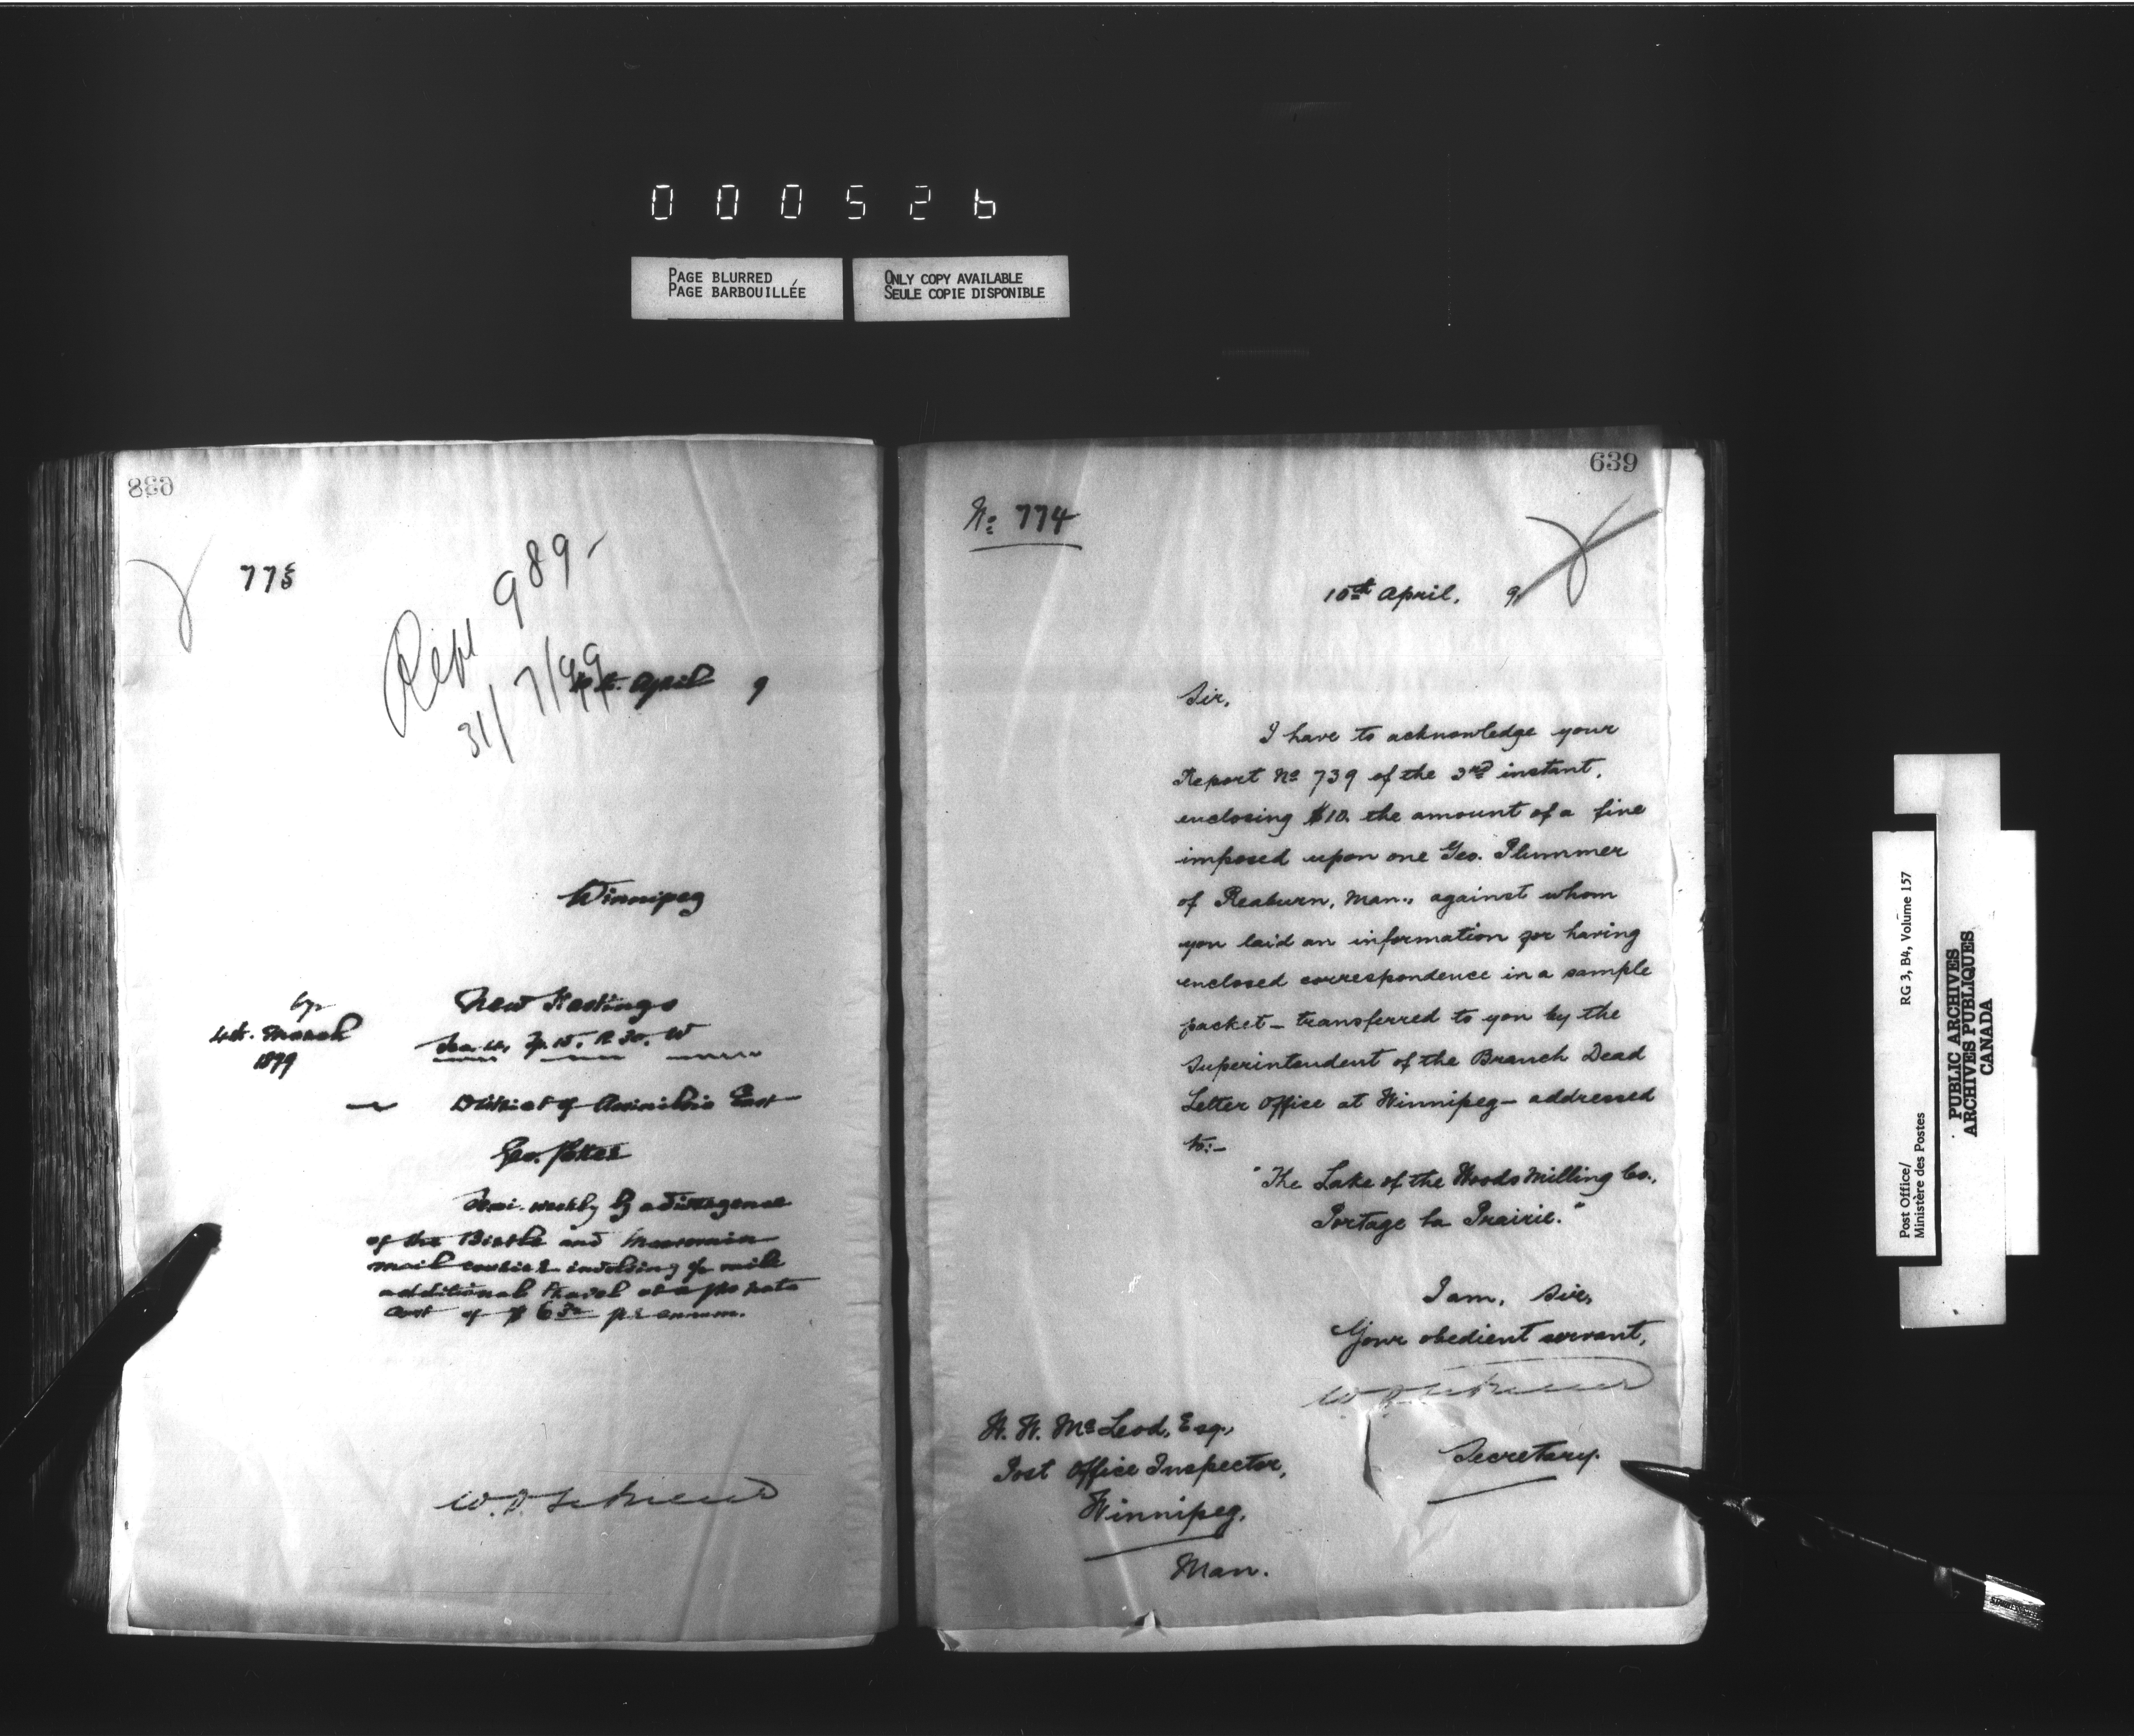 000526
PAGE BLURRED
PAGE BARBOUILLÉE
ONLY COPY AVAILABLE
SEULE COPIE DISPONIBLE
638
775
989
31/7/99
April 9
Winnipeg
by
4th. March
1899
New Hastings
Sec. Tp. 15. R. 30. W
District of Assiniboia East
Geo.
Semi-weekly by a divergence
of the Birtle and
mail courier involving mile
additional travel at a pro rata
cost of $6 per annum.
639
No 774
10th April, 9
Sir,
I have to acknowledge your
Report No 739 of the 3rd instant,
enclosing $10. the amount of a fine
imposed upon one Geo. Plummer
of Reaburn, Man., against whom
you laid an information for having
enclosed correspondence in a sample
packet – transferred to you by the
Superintendent of the Branch Dead
Letter Office at Winnipeg – addressed
to:–
"The Lake of the Woods Milling Co.,
Portage la Prairie."
I am, Sir,
Your obedient servant,
Secretary.
W. W. McLeod, Esq.,
Post Office Inspector,
Winnipeg,
Man.
Post Office/ RG 3, B4, Volume 157
Ministère des Postes
PUBLIC ARCHIVES
ARCHIVES PUBLIQUES
CANADA